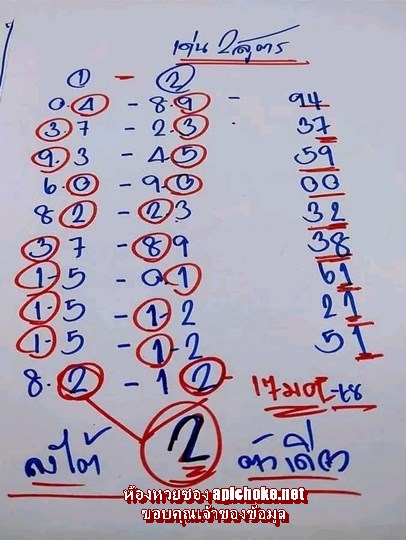 เด่น 2 สูตร
1 - 2
0.4 - 8.9 - 94
3.7 - 2.3 37
9.3 - 4.5 59
6.0 - 9.0 00
8.2 - 2.3 32
3.7 - 8.9 38
1.5 - 0.1 61
1.5 - 1.2 21
1.5 - 1.2 51
8.2 - 1.2 17 มค-68
ลงใต้ 2 ตัวเดียว
ห้องหวยซอง apichoke.net
ขอบคุณเจ้าของข้อมูล